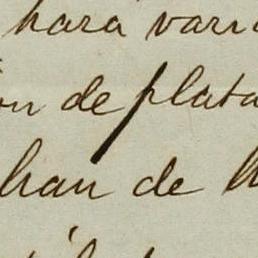 hara vari
ón de plata
han de